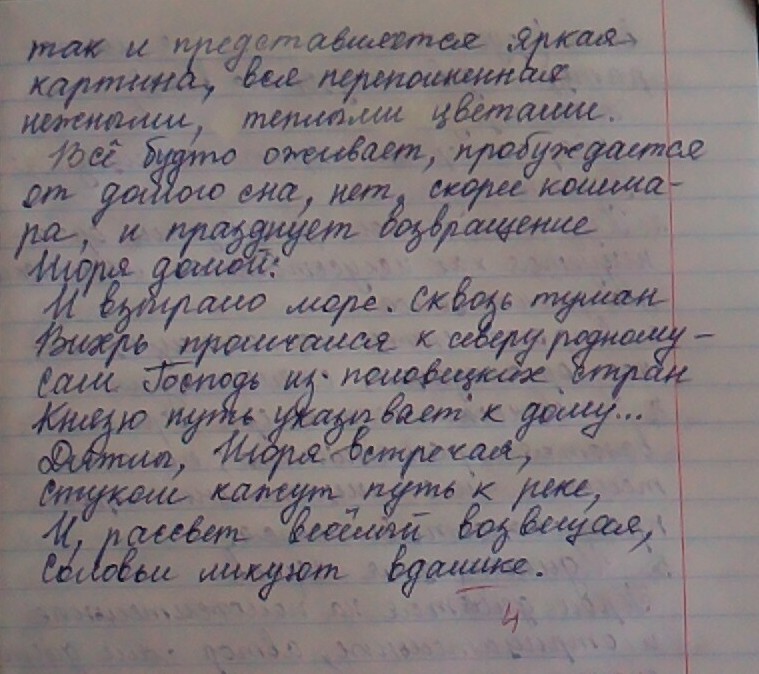 так и представляется яркая
картина, вся переполненная
нежными, теплыми цветами.
Всё будто оживает, пробуждается
от долгого сна, нет, скорее кошма-
ра, и празднует возвращение
Игоря домой:
И взыграло море. Сквозь туман
Вихрь промчался к северу родному -
Сам Господь из половецких стран
Князю путь указывает к дому...
Дятлы, Игоря встречая,
Стуком кажут путь к реке,
И, рассвет весёлый возвещая,
Соловьи ликуют вдалике.
4